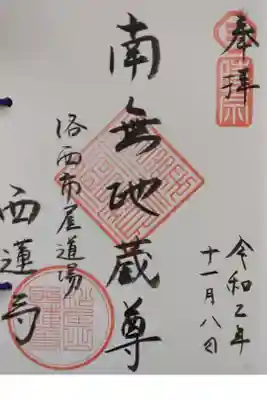 奉拝
令和二年
十一月八日
南無地蔵尊
洛西市屋道場
西蓮寺